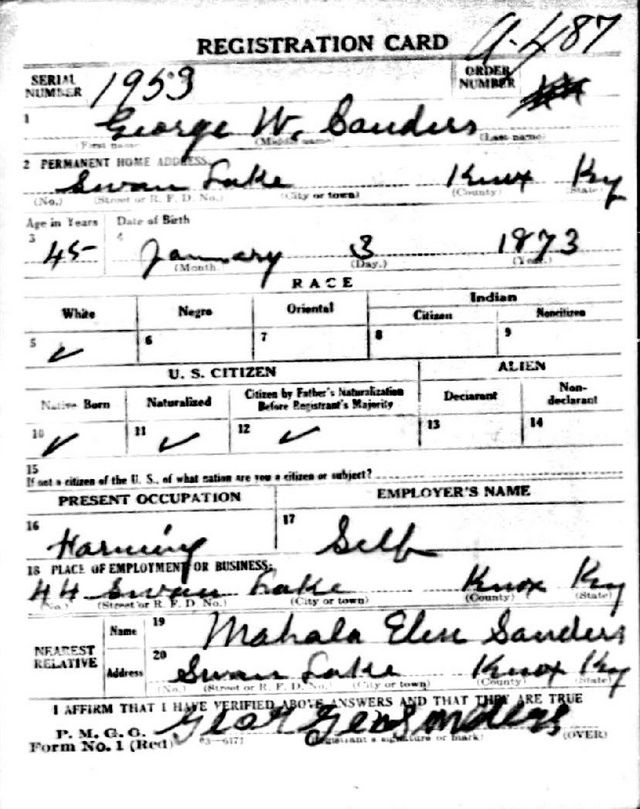 REGISTRATION CARD A-487
SERIAL NUMBER 1953 ORDER NUMBER
1 George W. Sanders
(First name) (Middle name) (Last name)
2 PERMANENT HOME ADDRESS
Swan Lake Knox Ky
(No.) (Street or R. F. D. No.) (City or town) (County) (State)
Age in Years Date of Birth
3 45 4 January 3 1873
(Month) (Day.) (Year.)
RACE
White Negro Oriental Indian
Citizen Noncitizen
5 ✓ 6 7 8 9
U. S. CITIZEN ALIEN
Native Born Naturalized Citizen by Father's Naturalization Before Registrant's Majority Declarant Non-declarant
10 ✓ 11 ✓ 12 ✓ 13 14
15
If not a citizen of the U. S., of what nation are you a citizen or subject?
PRESENT OCCUPATION EMPLOYER'S NAME
16 Farming 17 Self
18 PLACE OF EMPLOYMENT OR BUSINESS:
44 Swan Lake Knox Ky
(No.) (Street or R. F. D. No.) (City or town) (County) (State)
NEAREST RELATIVE Name 19 Mahala Sanders
Address 20 Swan Lake Knox Ky
(No.) (Street or R. F. D. No.) (City or town) (County) (State)
I AFFIRM THAT I HAVE VERIFIED ABOVE ANSWERS AND THAT THEY ARE TRUE
P. M. G. O.
Form No. 1 (Red) (Registrant's signature or mark) (OVER)